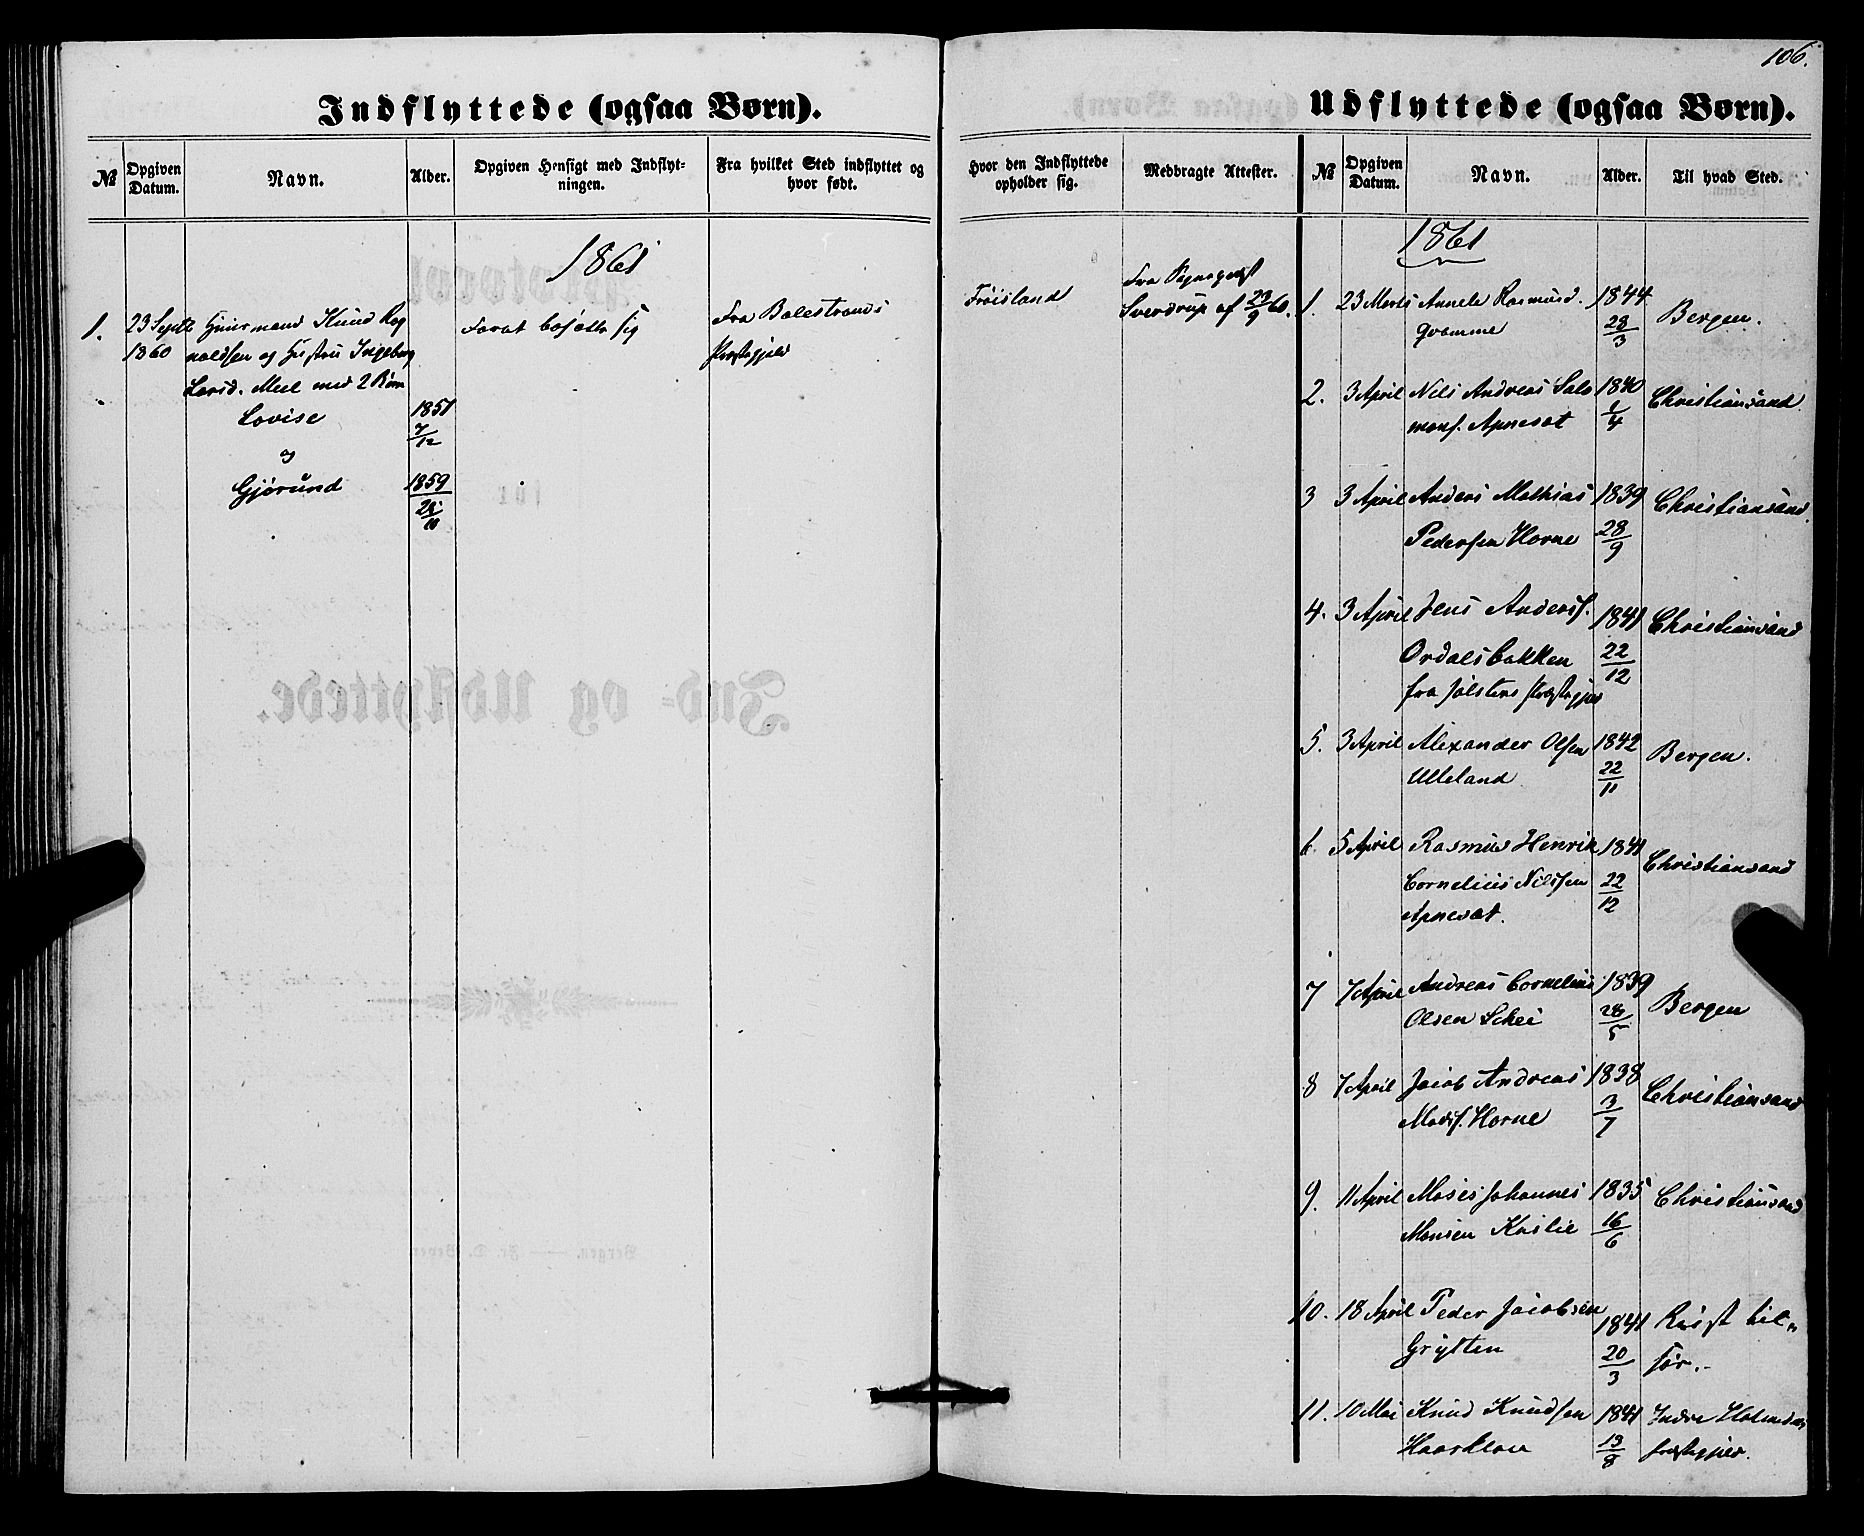 106.
Indflyttede (ogsaa Børn).
Udflyttede (ogsaa Børn).
№ Opgiven Datum. Navn. Alder. Opgiven Hensigt med Indflyt-
ningen. Fra hvilket Sted indflyttet og
hvor født. Hvor den Indflyttede
opholder sig. Medbragte Attester.
1861
1. 23 Septb Huusmand Knud Rag Forat bosætte sig Fra Balestrands Frøisland Fra Sogneprest
1860 naldsen og Hustru Ingeborg Præstegjeld Sverdrup af 23/9 60.
Larsd. Meel med 2 Børn
Lovise 1857
7/12
og
Gjørund 1859
№ Opgiven Datum. Navn. Alder. Til hvad Sted.
1861
1. 23 Marts Annele Rasmusd. 1844 Bergen.
Qvamme 28/3
2. 3 April Nils Andreas Salo 1840 Christiansand.
mons. Apnesæt 1/4
3 3 April Anders Mathias 1839 Christiansand.
Pedersen Horne 28/9
4. 3 April Jens Anders. 1841 Christiansand
Ordalsbakken 22/12
fra Jølsters Præstegjeld
5. 3 April Alexander Olsen 1842 Bergen.
Ulleland 22/11
6. 5 April Rasmus Henrik 1841 Christiansand
Cornelius Nilssen 22/12
Apnesæt.
7 7 April Andreas Cornelius 1839 Bergen
Olsen Schei 28/5
8 7 April Jacob Andreas 1838 Christiansand
Mads. Horne 3/7
9. 11 April Moses Johannes 1835 Christiansand
Monsen 16/6
10. 18 April Peder Jacobsen 1841 Reist til
Grytten 20/3 søes.
11. 10 Mai Knud Knudsen 1841 Indre Holmedals
Haarklau 13/8 præstegjeld.